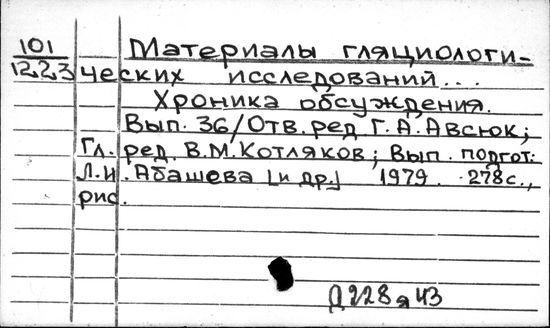 101 Материалы гляциологи-
12,2,3 ческих исследований...
Хроника обсуждения.
Вып. 36/Отв. ред Г.А.Авсюк;
Гл. ред. В.М.Котляков; Вып. подгот.
Л.И. Абашева [и др.] 1979. 278с.,
рис.
Д228я43